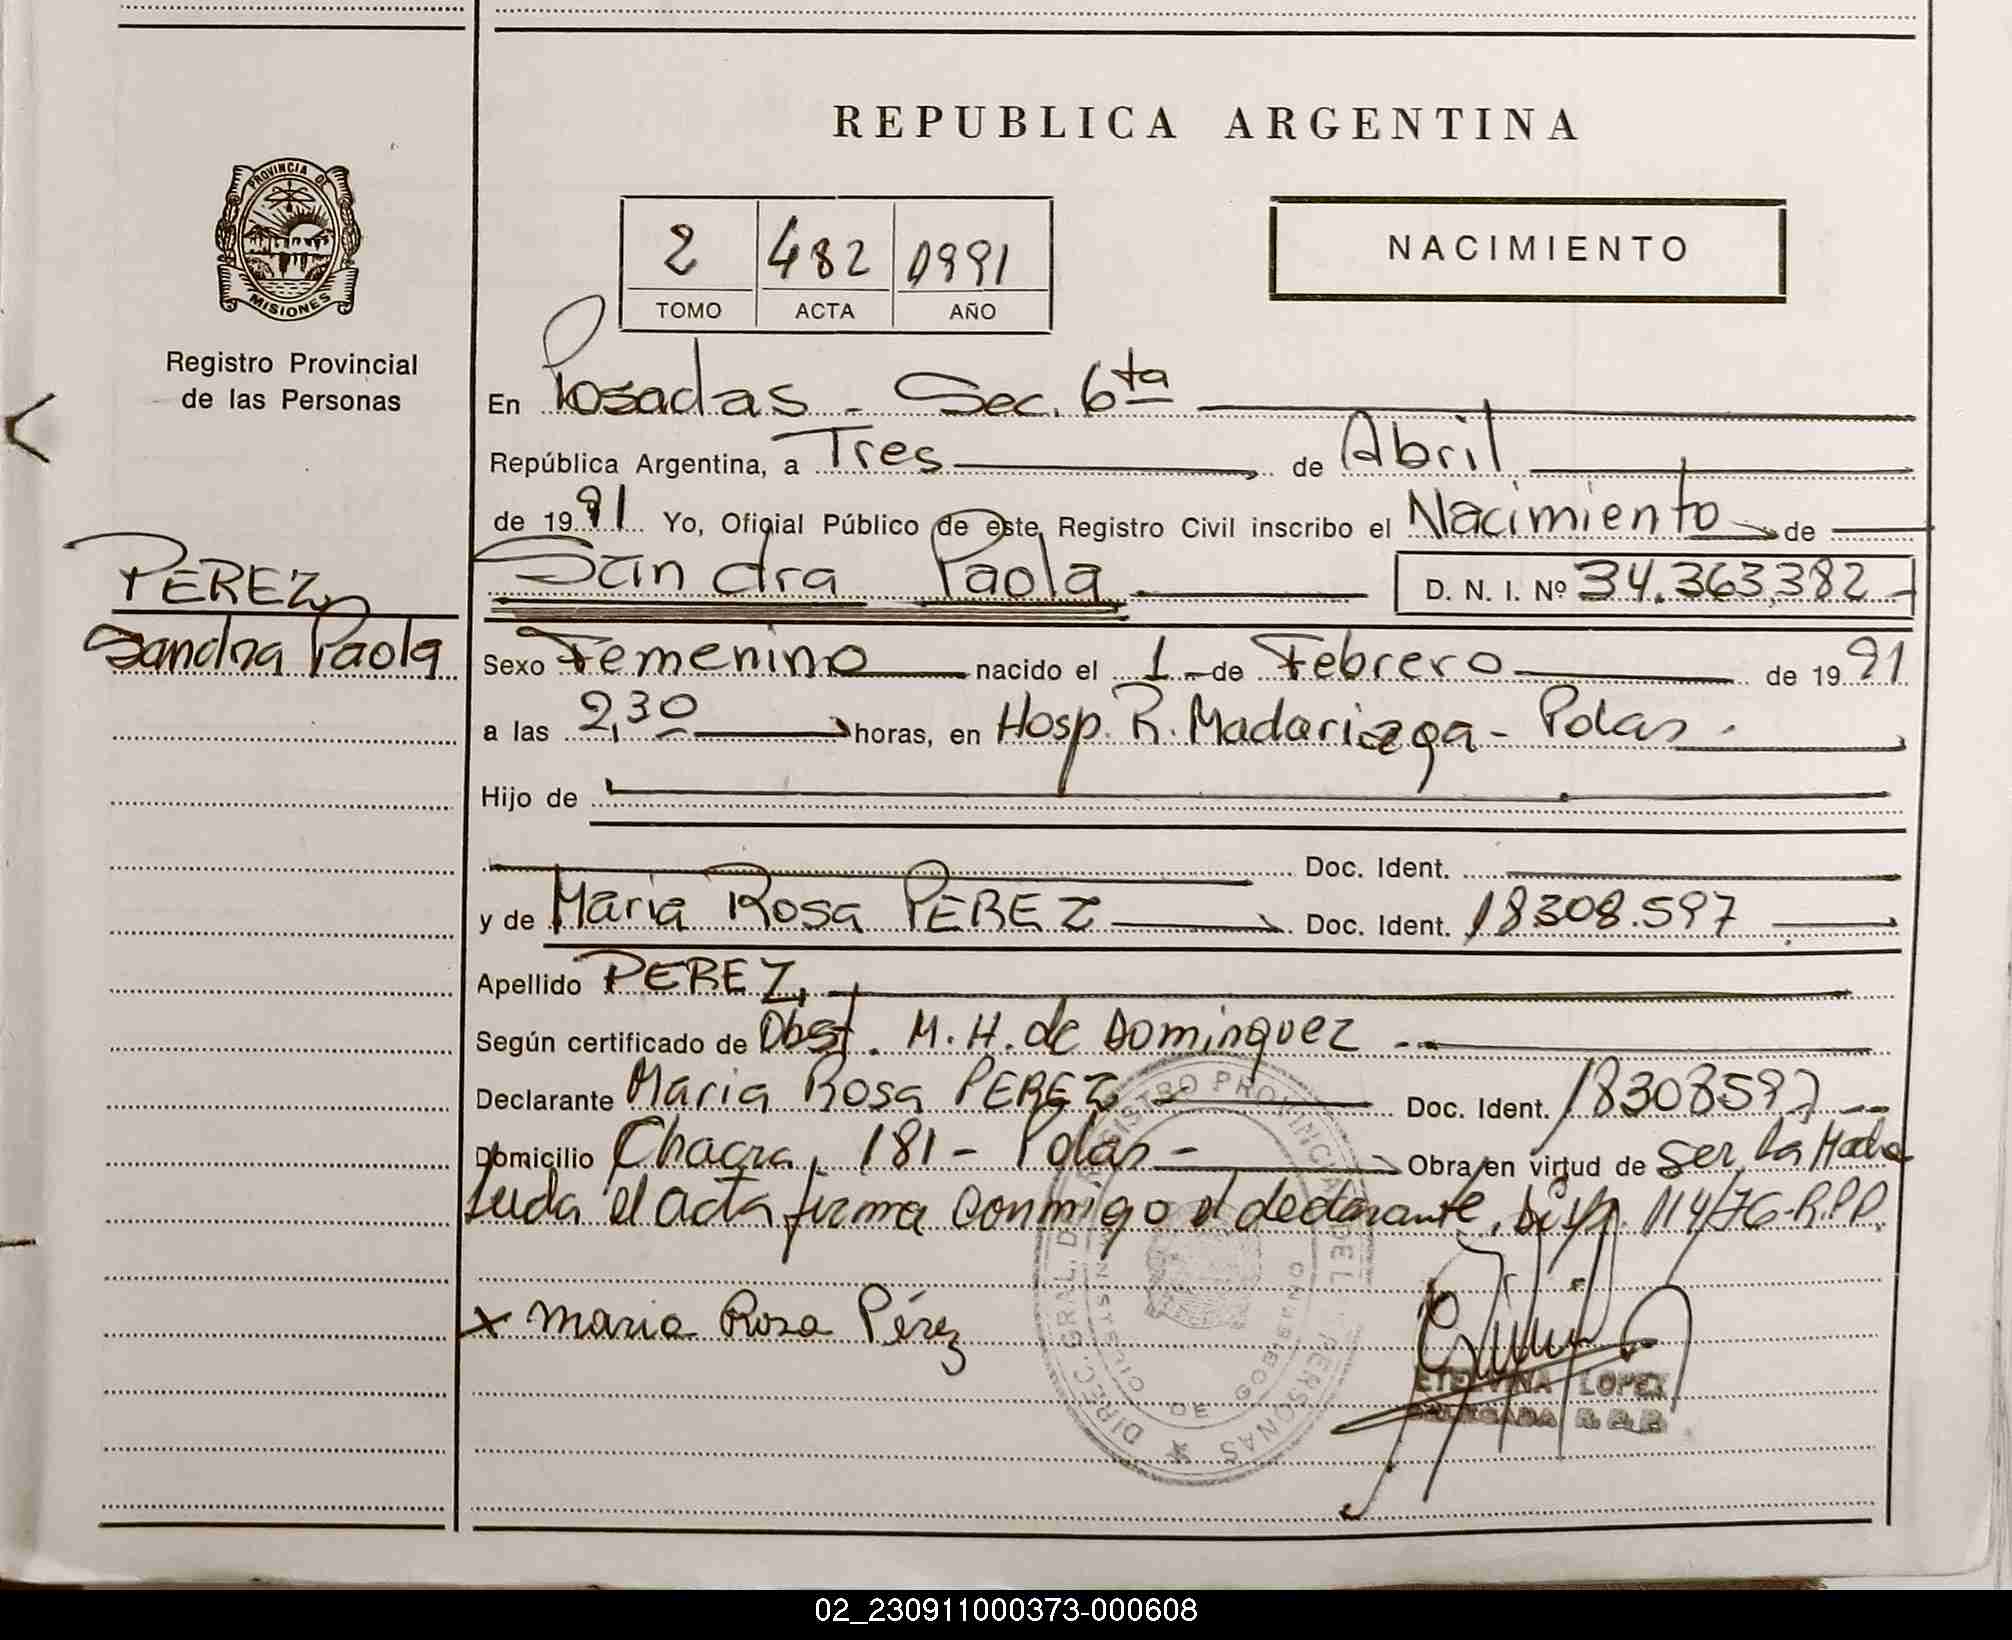 REPUBLICA ARGENTINA
PROVINCIA DE
MISIONES
Registro Provincial
de las Personas
2 482 1991
TOMO ACTA AÑO
NACIMIENTO
En Posadas - Sec. 6ta
República Argentina, a Tres de Abril
de 1991 Yo, Oficial Público de este Registro Civil inscribo el Nacimiento de
PEREZ
Sandra Paola
Sandra Paola D. N. I. Nº 34.363.382
Sexo Femenino nacido el 1 de Febrero de 1991
a las 2,30 horas, en Hosp. R. Madariaga - Pdas.
Hijo de
Doc. Ident.
y de Maria Rosa PEREZ Doc. Ident. 18308.597
Apellido PEREZ,
Según certificado de Obst. M. H. de Dominguez
Declarante Maria Rosa PEREZ Doc. Ident. 18308597
Domicilio Chacra, 181 - Pdas - Obra en virtud de Ser la Madre
Leida el acta firma conmigo el declarante. Disp. 114/76-R.P.P.
x Maria Rosa Pérez
DIREC. GRAL. DEL REGISTRO PROVINCIAL DE PERSONAS
MINISTERIO DE GOBIERNO
ETELVINA LOPEZ
DELEGADA R.P.P.
02_230911000373-000608